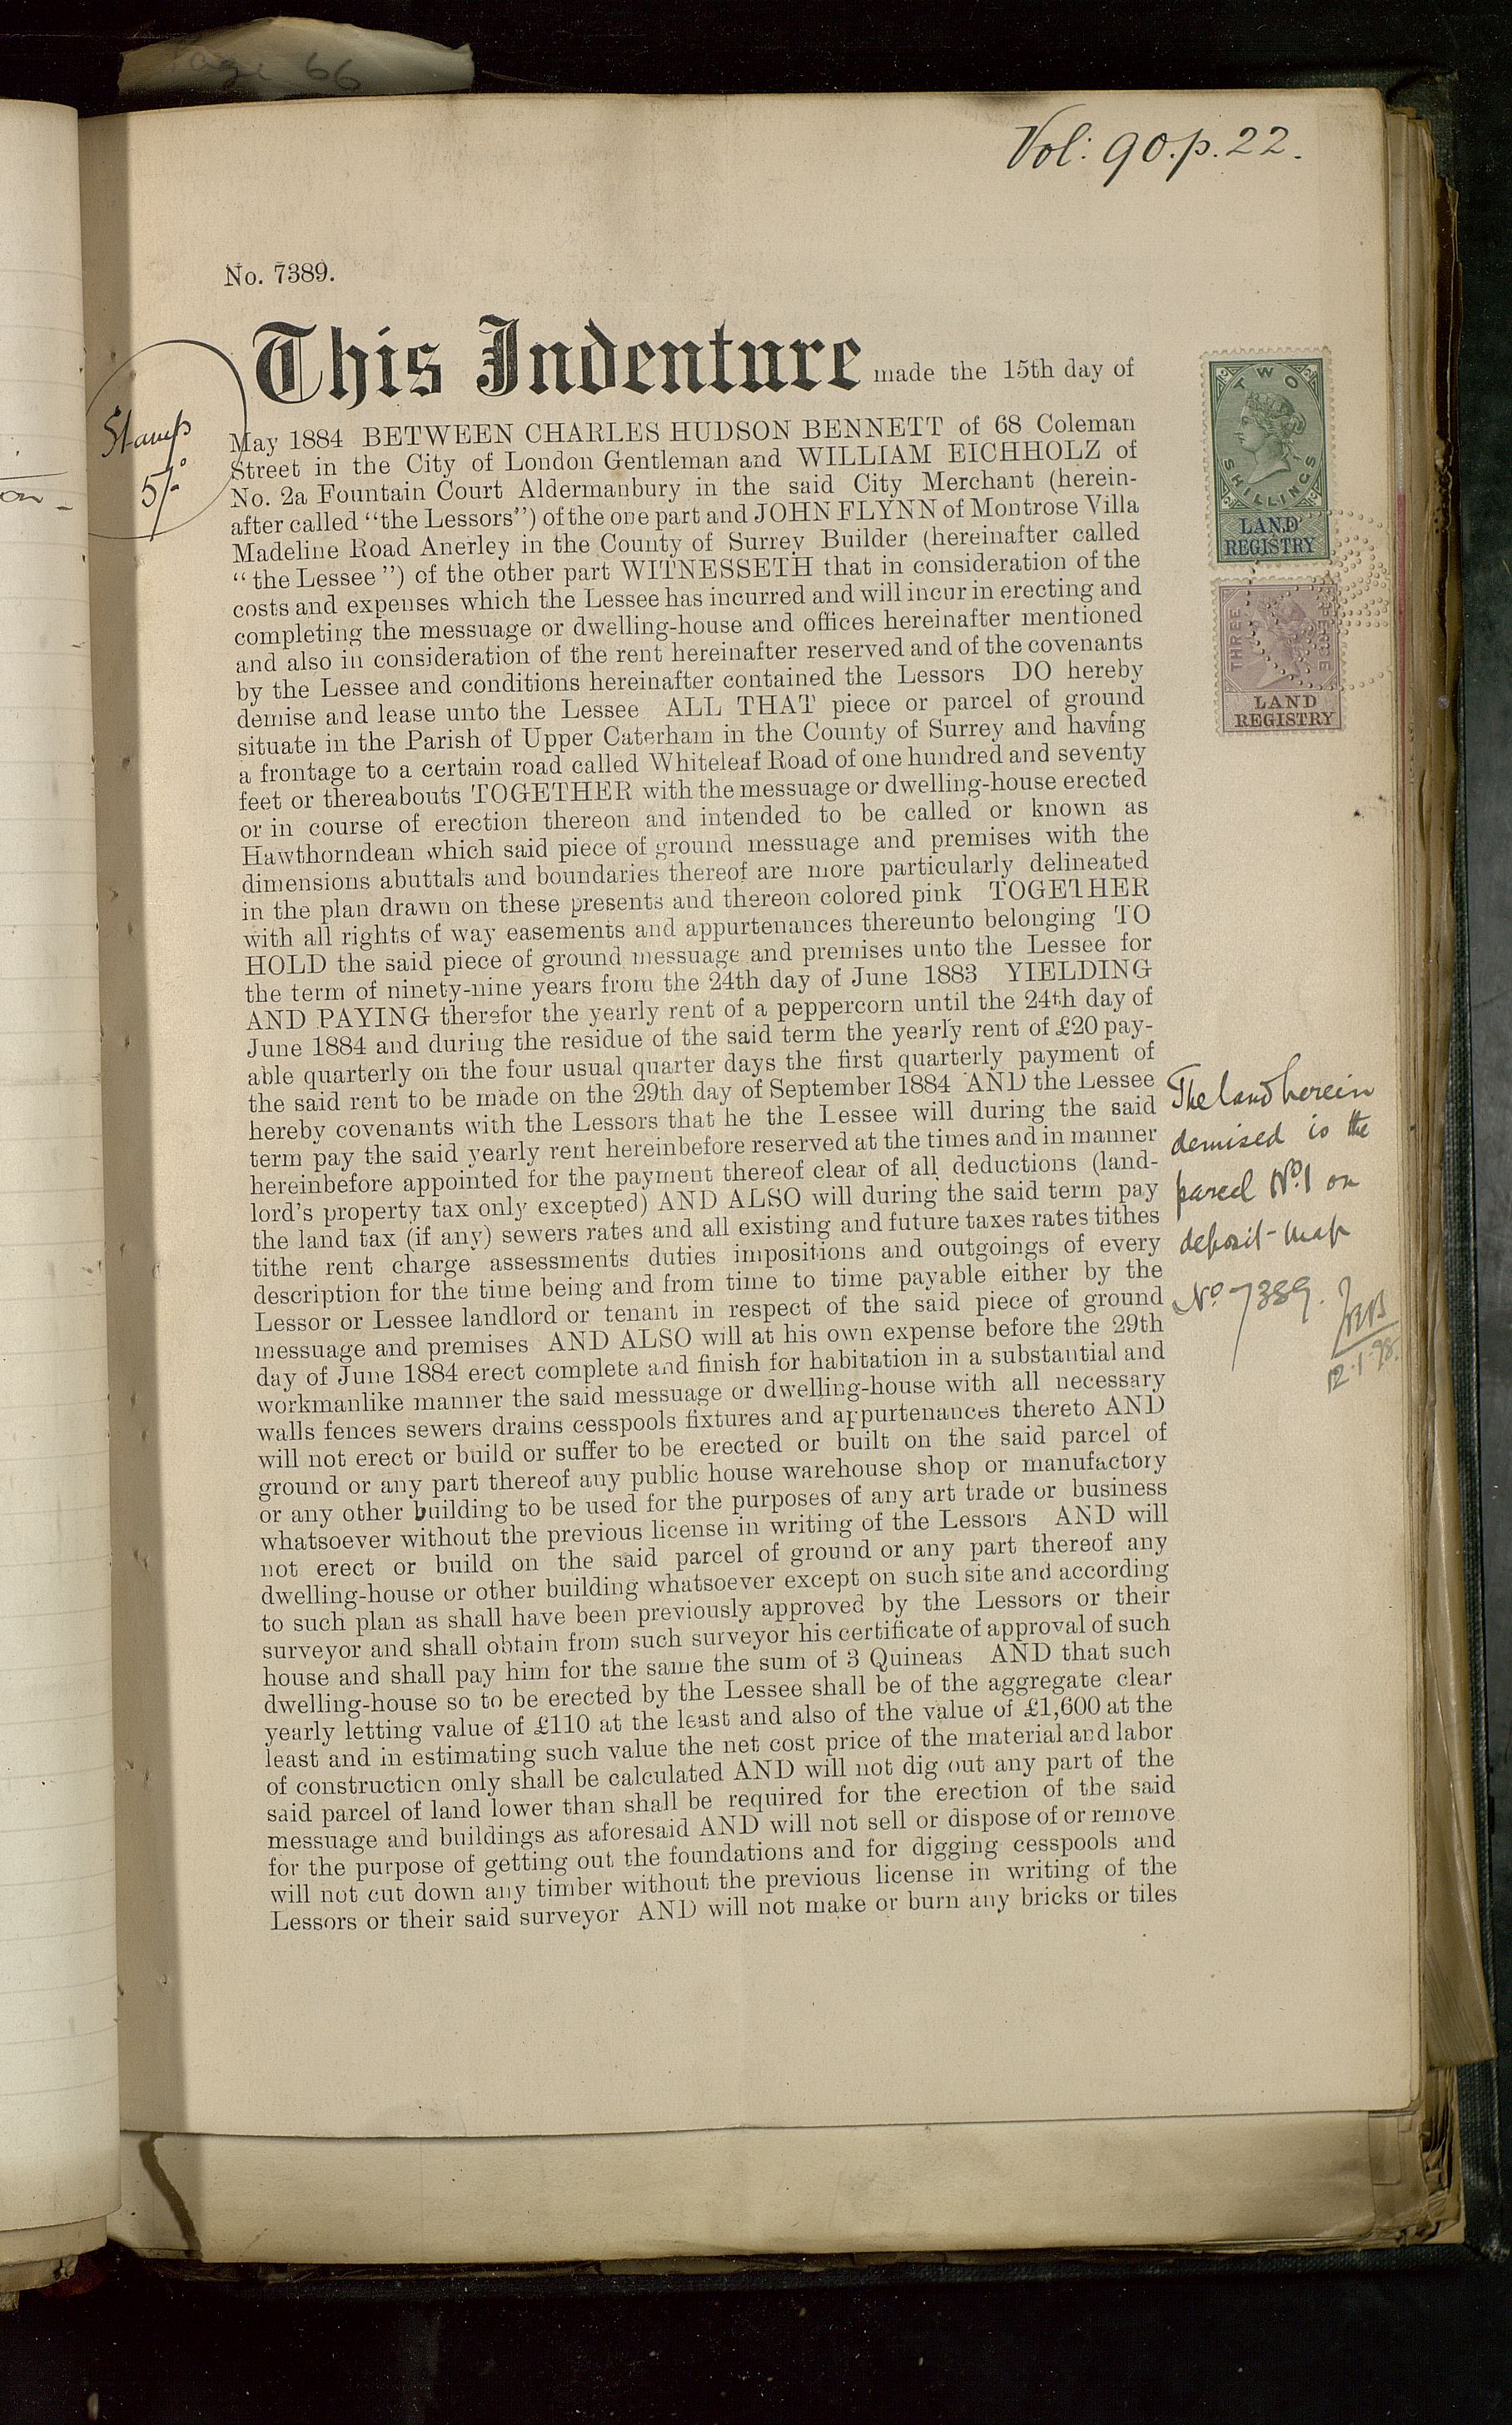 Page 66
Vol: 90. p. 22.
No. 7389.
This Indenture made the 15th day of
Stamp
5/-
May 1884 BETWEEN CHARLES HUDSON BENNETT of 68 Coleman
Street in the City of London Gentleman and WILLIAM EICHHOLZ of
No. 2a Fountain Court Aldermanbury in the said City Merchant (herein-
after called "the Lessors") of the one part and JOHN FLYNN of Montrose Villa
Madeline Road Anerley in the County of Surrey Builder (hereinafter called
"the Lessee") of the other part WITNESSETH that in consideration of the
costs and expenses which the Lessee has incurred and will incur in erecting and
completing the messuage or dwelling-house and offices hereinafter mentioned
and also in consideration of the rent hereinafter reserved and of the covenants
by the Lessee and conditions hereinafter contained the Lessors DO hereby
demise and lease unto the Lessee ALL THAT piece or parcel of ground
situate in the Parish of Upper Caterham in the County of Surrey and having
a frontage to a certain road called Whiteleaf Road of one hundred and seventy
feet or thereabouts TOGETHER with the messuage or dwelling-house erected
or in course of erection thereon and intended to be called or known as
Hawthorndean which said piece of ground messuage and premises with the
dimensions abuttals and boundaries thereof are more particularly delineated
in the plan drawn on these presents and thereon colored pink TOGETHER
with all rights of way easements and appurtenances thereunto belonging TO
HOLD the said piece of ground messuage and premises unto the Lessee for
the term of ninety-nine years from the 24th day of June 1883 YIELDING
AND PAYING therefor the yearly rent of a peppercorn until the 24th day of
June 1884 and during the residue of the said term the yearly rent of £20 pay-
able quarterly on the four usual quarter days the first quarterly payment of
the said rent to be made on the 29th day of September 1884 AND the Lessee
hereby covenants with the Lessors that he the Lessee will during the said
term pay the said yearly rent hereinbefore reserved at the times and in manner
hereinbefore appointed for the payment thereof clear of all deductions (land-
lord's property tax only excepted) AND ALSO will during the said term pay
the land tax (if any) sewers rates and all existing and future taxes rates tithes
tithe rent charge assessments duties impositions and outgoings of every
description for the time being and from time to time payable either by the
Lessor or Lessee landlord or tenant in respect of the said piece of ground
messuage and premises AND ALSO will at his own expense before the 29th
day of June 1884 erect complete and finish for habitation in a substantial and
workmanlike manner the said messuage or dwelling-house with all necessary
walls fences sewers drains cesspools fixtures and appurtenances thereto AND
will not erect or build or suffer to be erected or built on the said parcel of
ground or any part thereof any public house warehouse shop or manufactory
or any other building to be used for the purposes of any art trade or business
whatsoever without the previous license in writing of the Lessors AND will
not erect or build on the said parcel of ground or any part thereof any
dwelling-house or other building whatsoever except on such site and according
to such plan as shall have been previously approved by the Lessors or their
surveyor and shall obtain from such surveyor his certificate of approval of such
house and shall pay him for the same the sum of 3 Quineas AND that such
dwelling-house so to be erected by the Lessee shall be of the aggregate clear
yearly letting value of £110 at the least and also of the value of £1,600 at the
least and in estimating such value the net cost price of the material and labor
of construction only shall be calculated AND will not dig out any part of the
said parcel of land lower than shall be required for the erection of the said
messuage and buildings as aforesaid AND will not sell or dispose of or remove
for the purpose of getting out the foundations and for digging cesspools and
will not cut down any timber without the previous license in writing of the
Lessors or their said surveyor AND will not make or burn any bricks or tiles
TWO
SHILLINGS
LAND
REGISTRY
THREE
PENCE
LAND
REGISTRY
The land herein
demised is the
parcel No. 1 on
deposit-map
No. 7389.
12.1.98.
on -